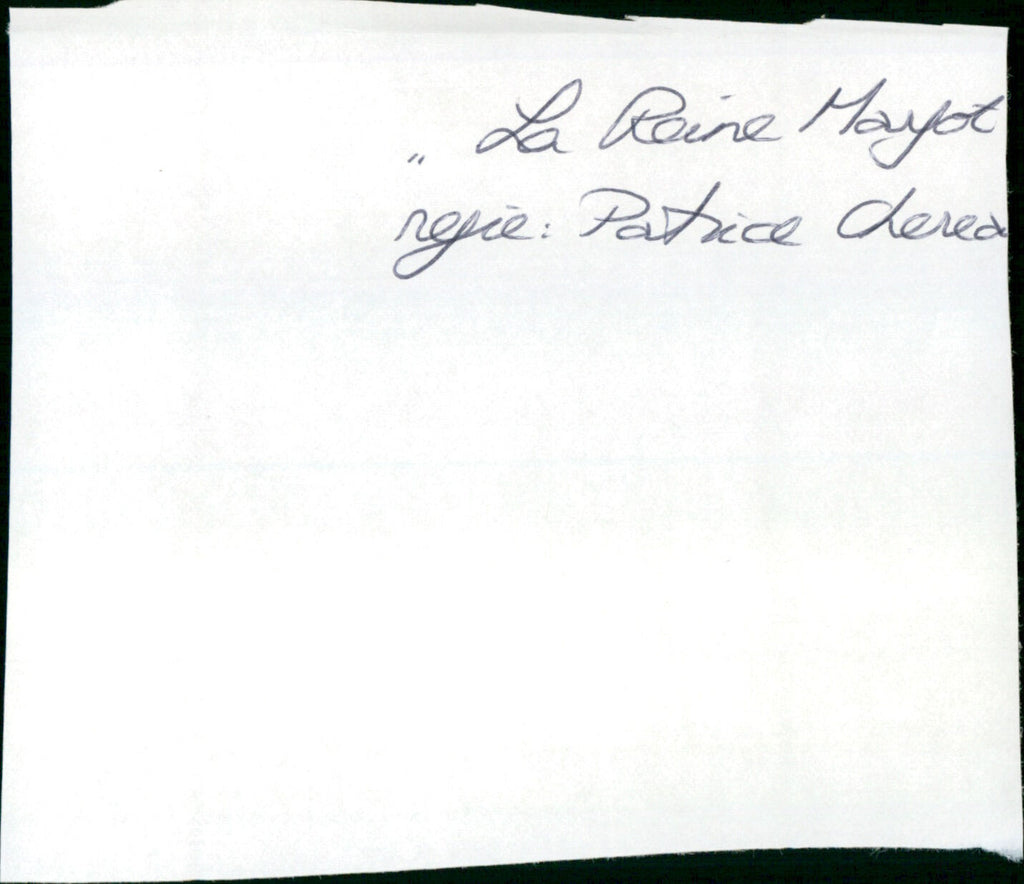 „ La Reine Margot
regie: Patrice Cherea